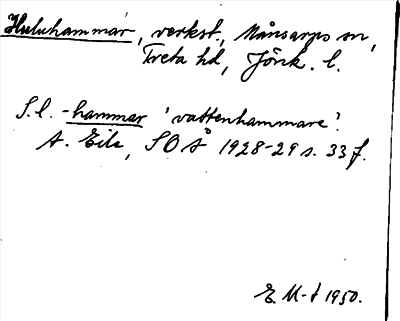 Huluhammar, verkst., Månsarps sn,
Tveta hd, Jönk. l.
S.l. -hammar 'vattenhammare'.
A. Ek, SOÅ 1928-29 s. 33 f.
E. M-t 1950.